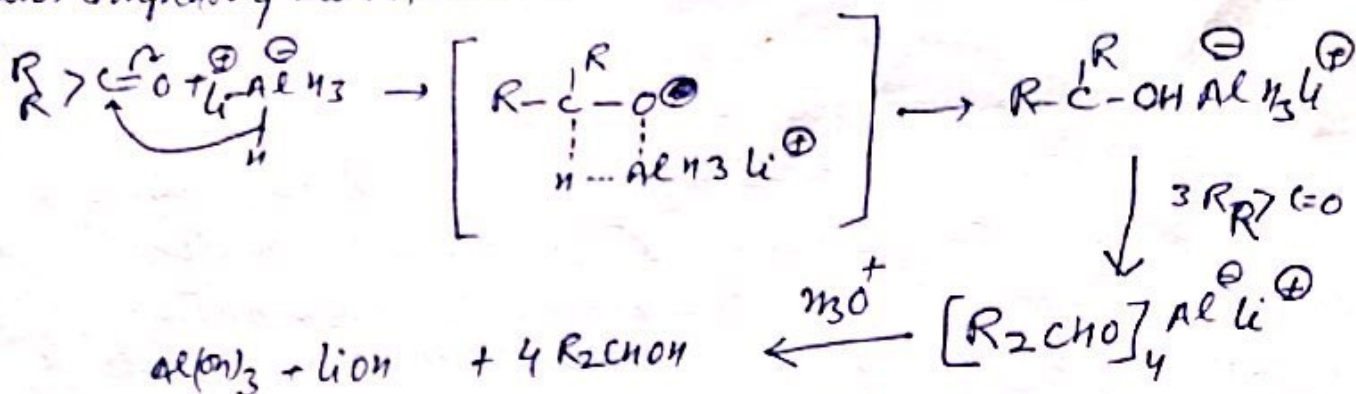 R R > C=O + Li⊕ Al⊖ H3 → [ R-C-O⊖ → R-C-OH Al⊖ H3 Li⊕
R
R
H
H ... Al H3 Li⊕ ]
3 R R > C=O
Al(OH)3 + LiOH + 4 R2CHOH ← H3O+ [R2CHO]4 Al⊖ Li⊕